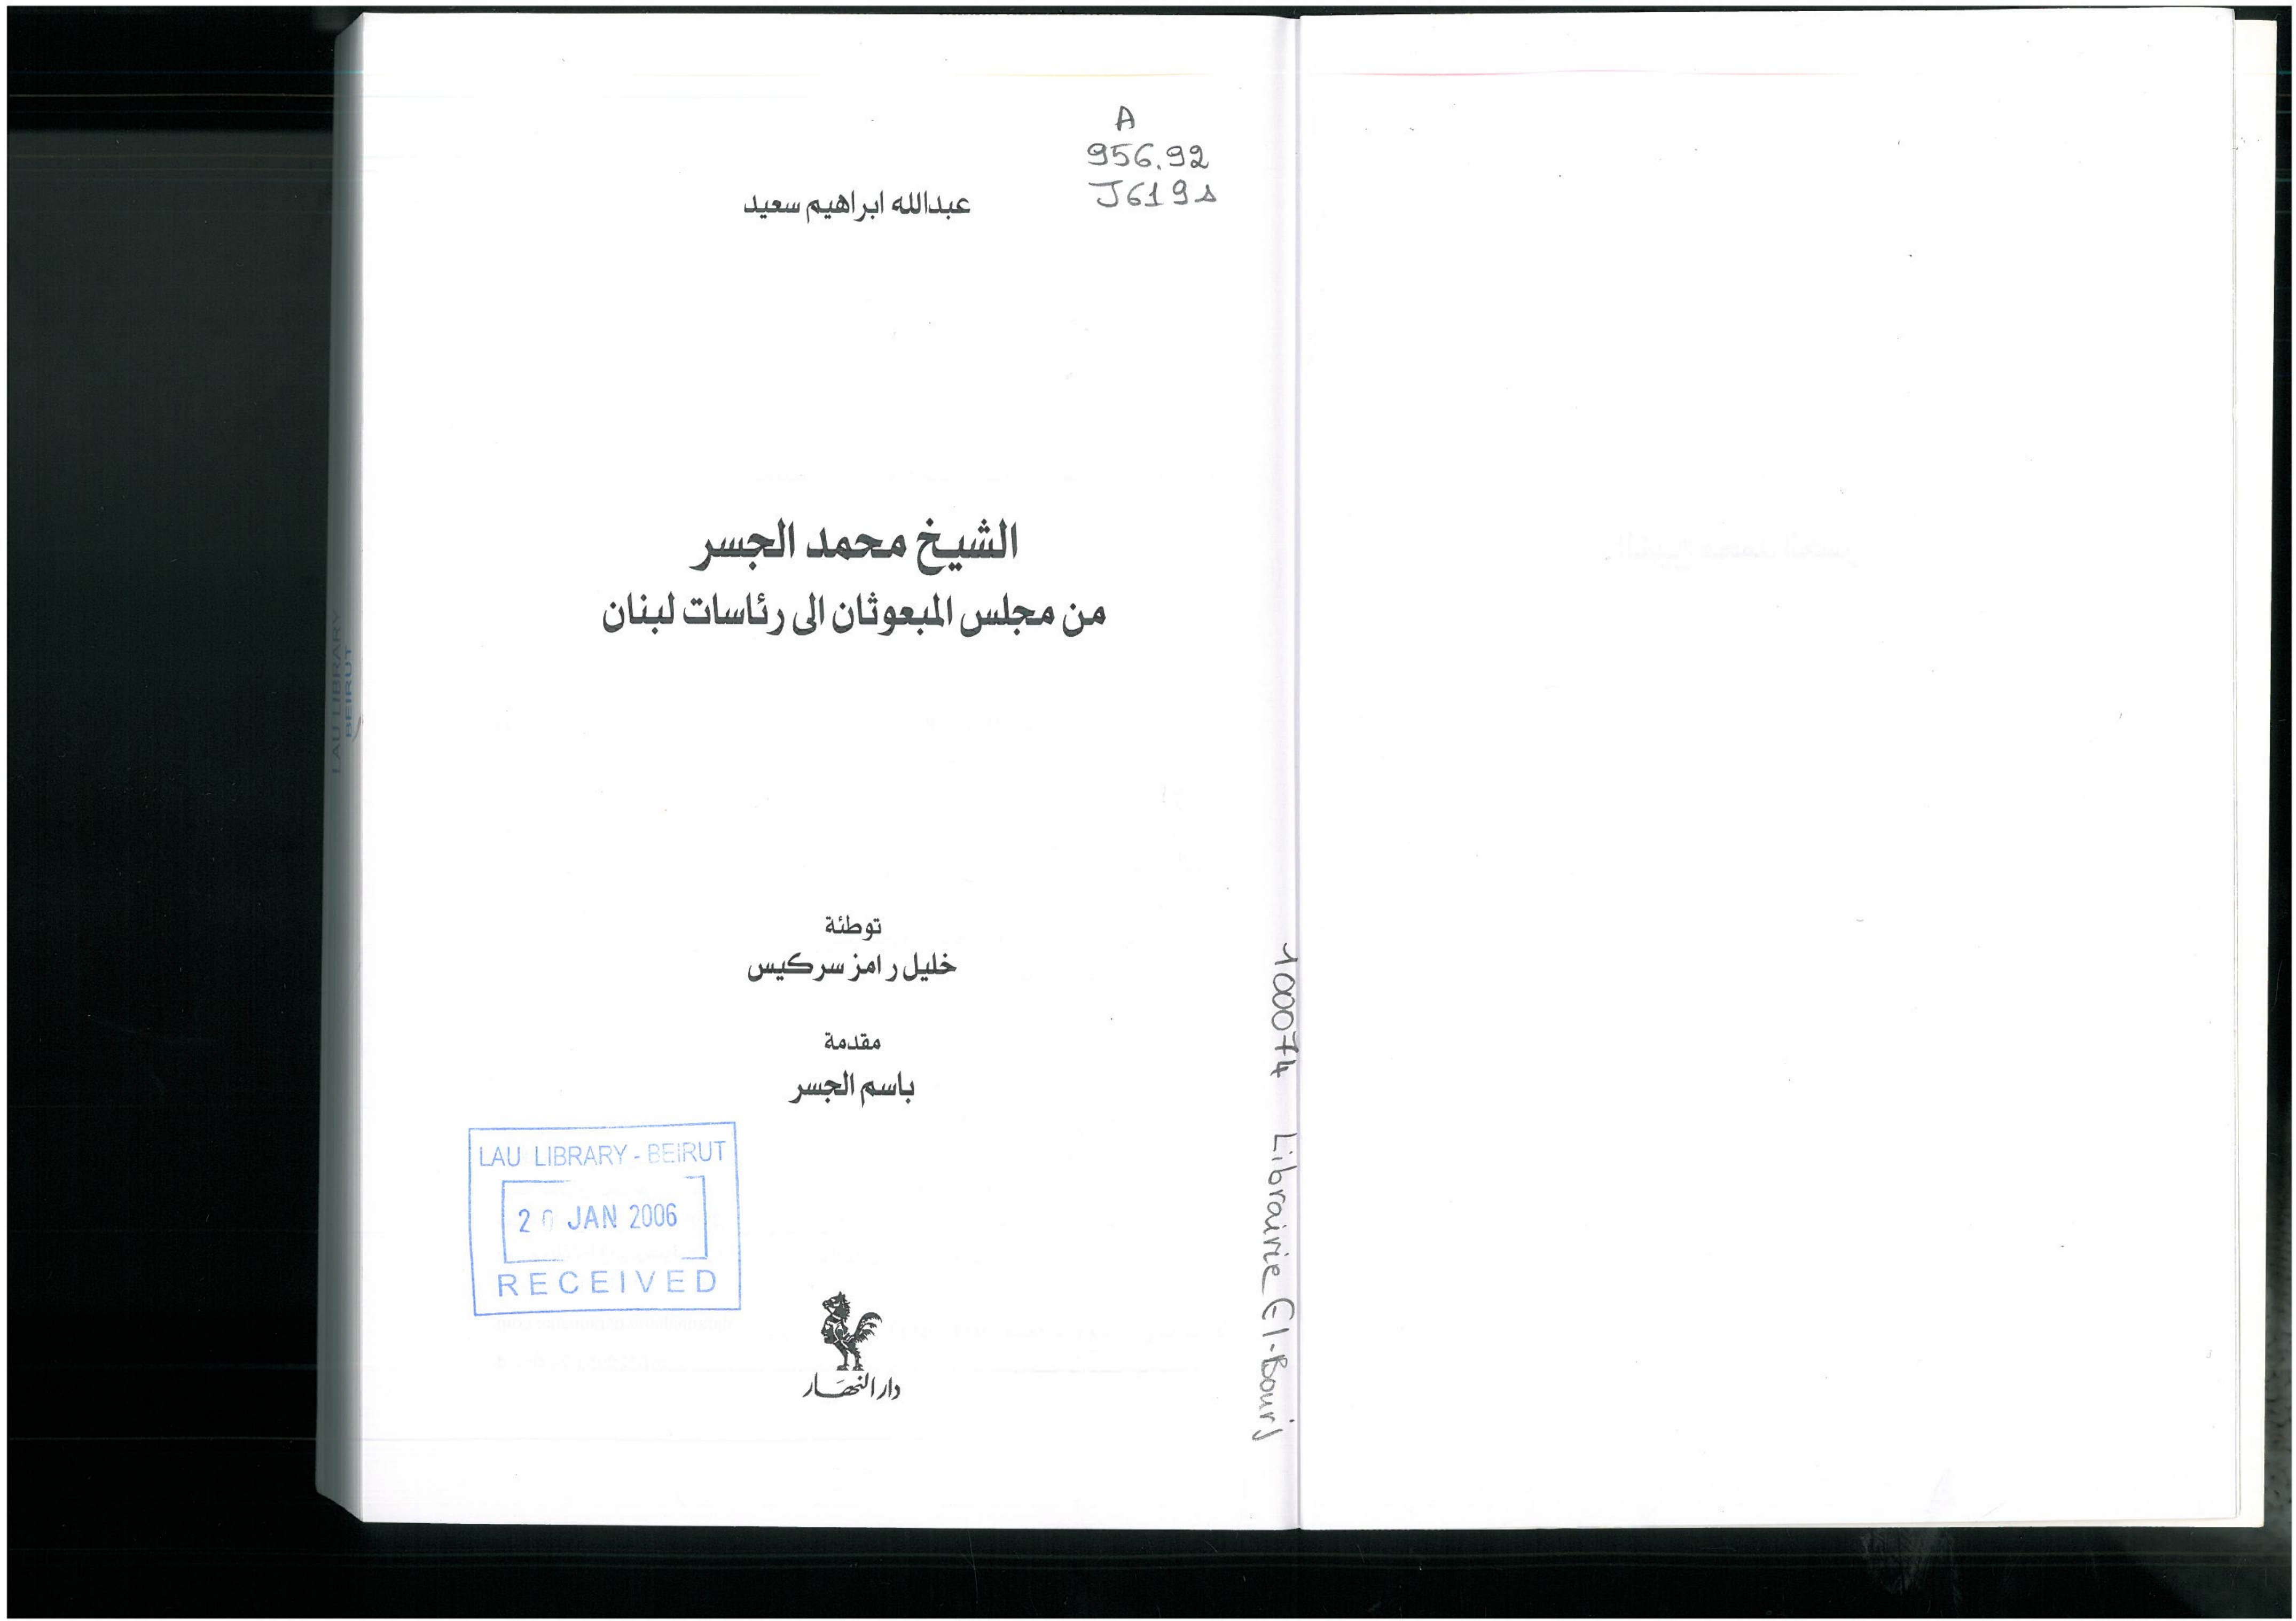 A
956.92
J619s
عبدالله ابراهيم سعيد
الشيخ محمد الجسر
من مجلس المبعوثان الى رئاسات لبنان
توطئة
خليل رامز سركيس
مقدمة
باسم الجسر
LAU LIBRARY - BEIRUT
JAN 2006
RECEIVED
دار النهار
100074 Librairie El-Bourj
LAU LIBRARY
BEIRUT